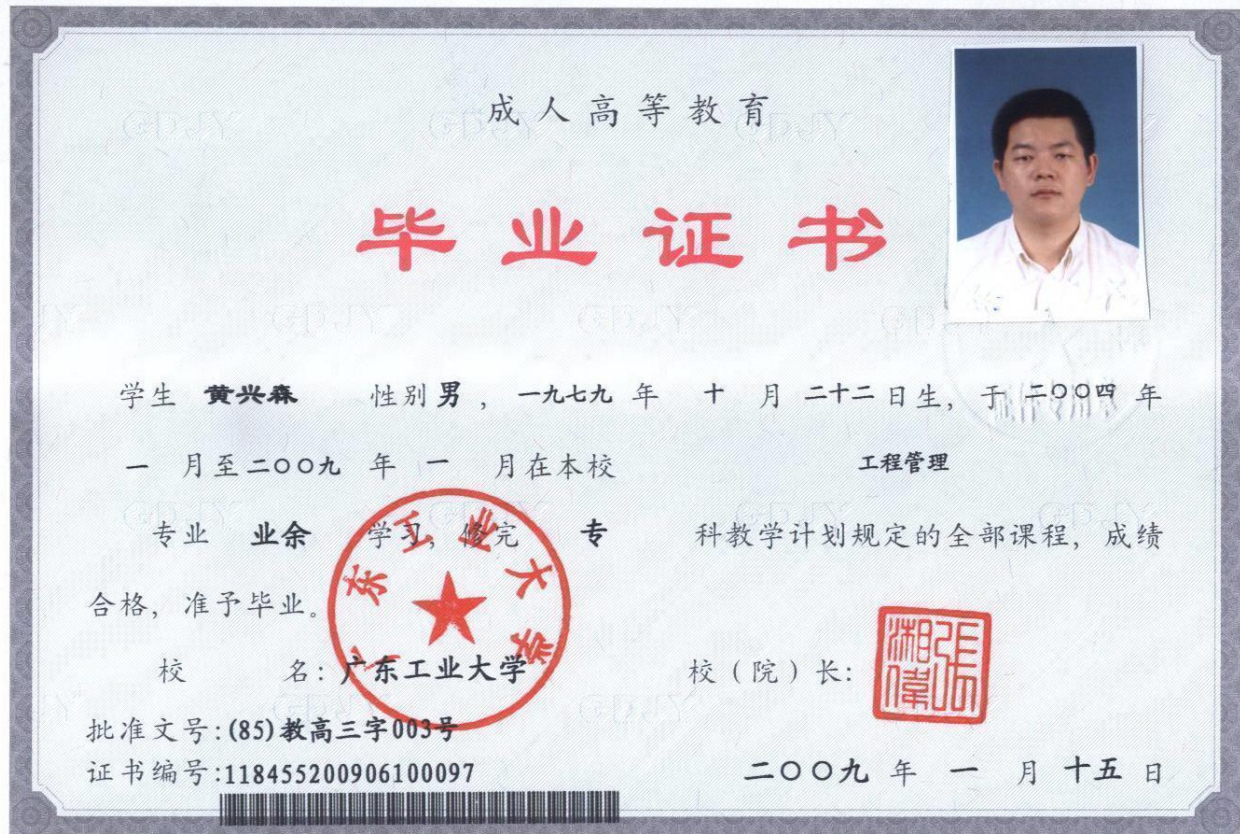 成人高等教育
毕业证书
学生 黄兴森 性别 男 ， 一九七九 年 十 月 二十二 日生，于 二〇〇四 年
一 月至 二〇〇九 年 一 月在本校 工程管理
专业 业余 学习，修完 专 科教学计划规定的全部课程，成绩
合格，准予毕业。
广东工业大学
校 名：广东工业大学 校（院）长：
张湘偉
批准文号：(85)教高三字003号
证书编号：118455200906100097 二〇〇九 年 一 月 十五 日